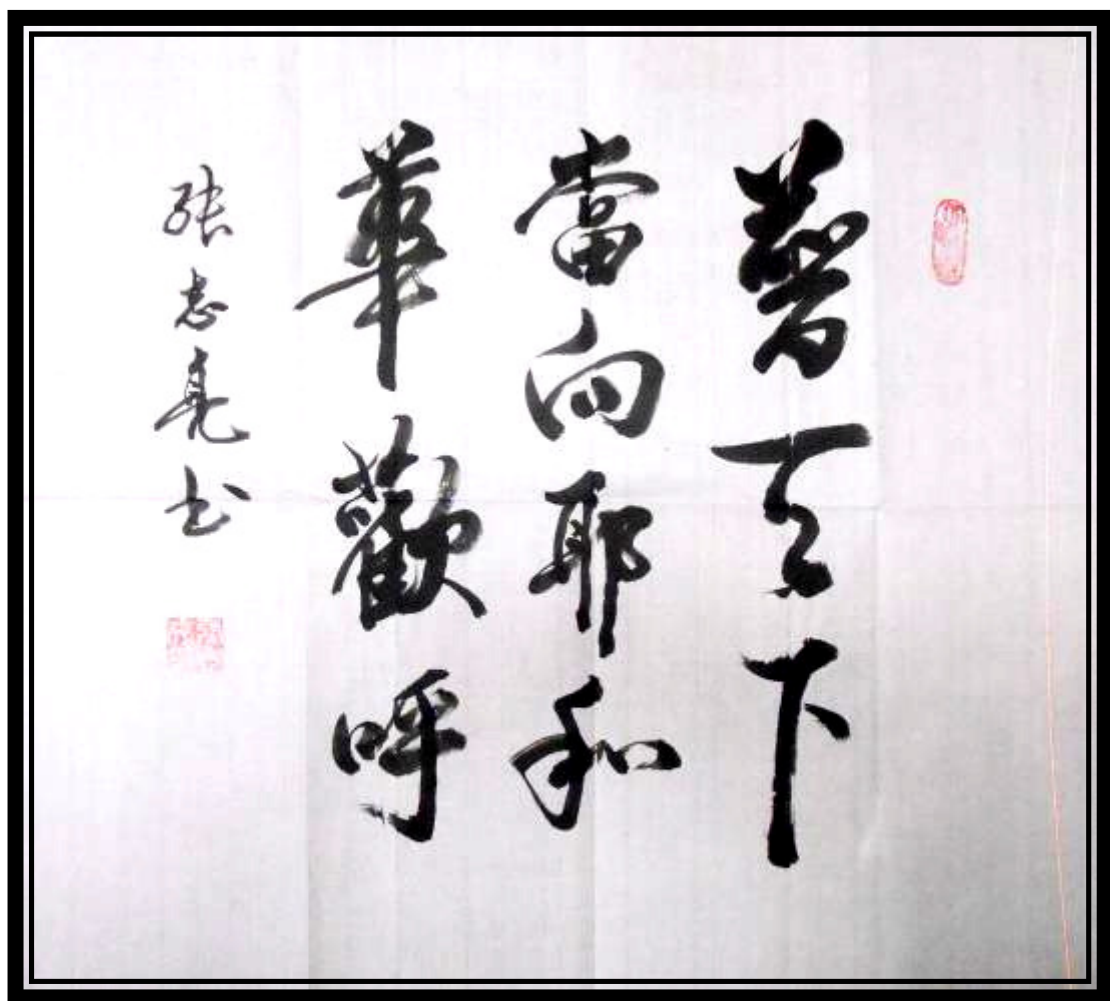 普天下
當向耶和
華歡呼
张志亮书